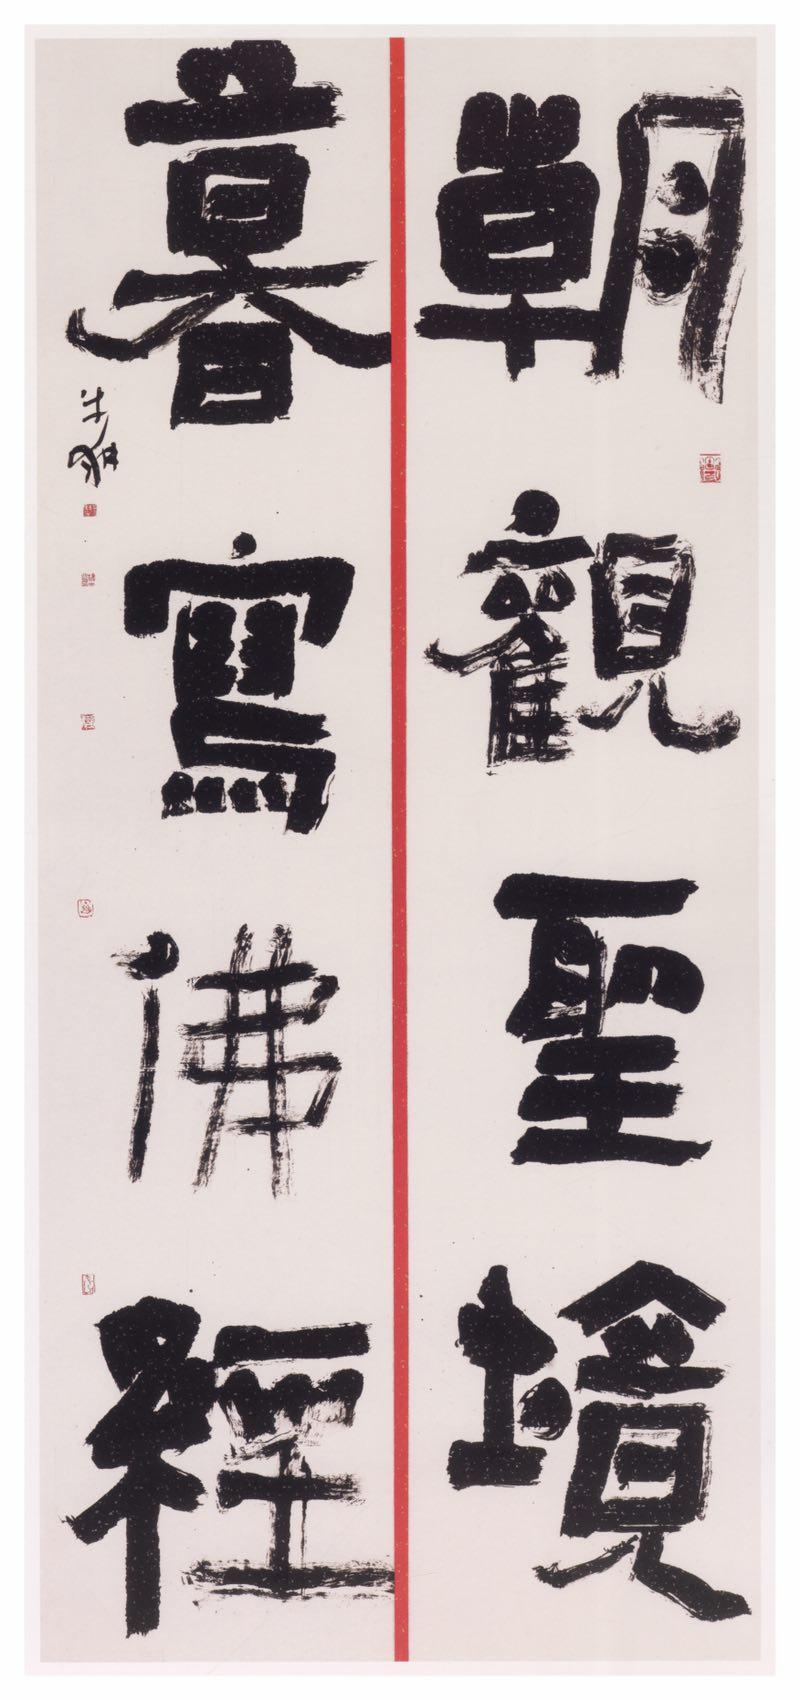 朝觀聖境
暮寫佛經